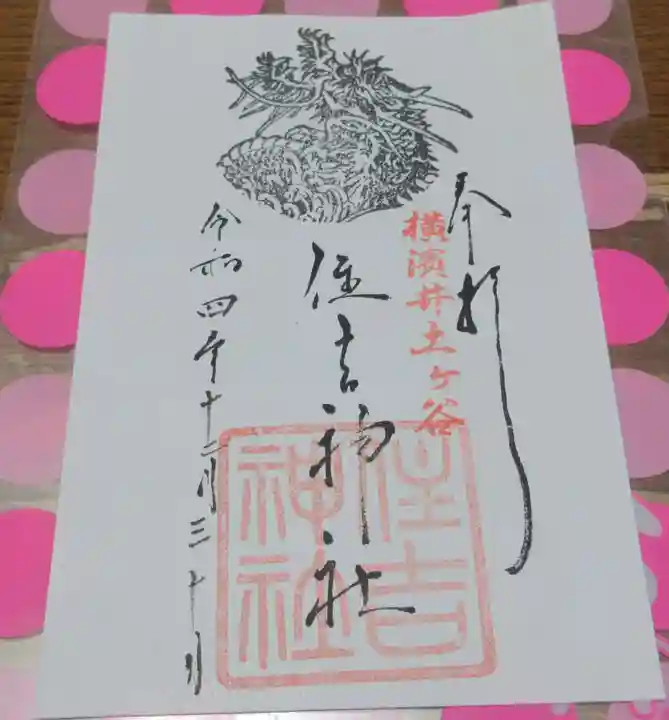 奉拝
横濱井土ヶ谷
住吉神社
住吉
神社
令和四年十二月三十日